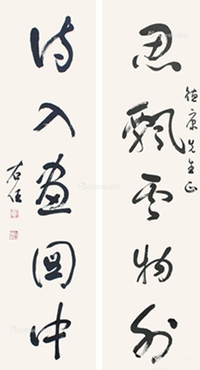 思飘云物外
德康先生正
诗入画图中
右任